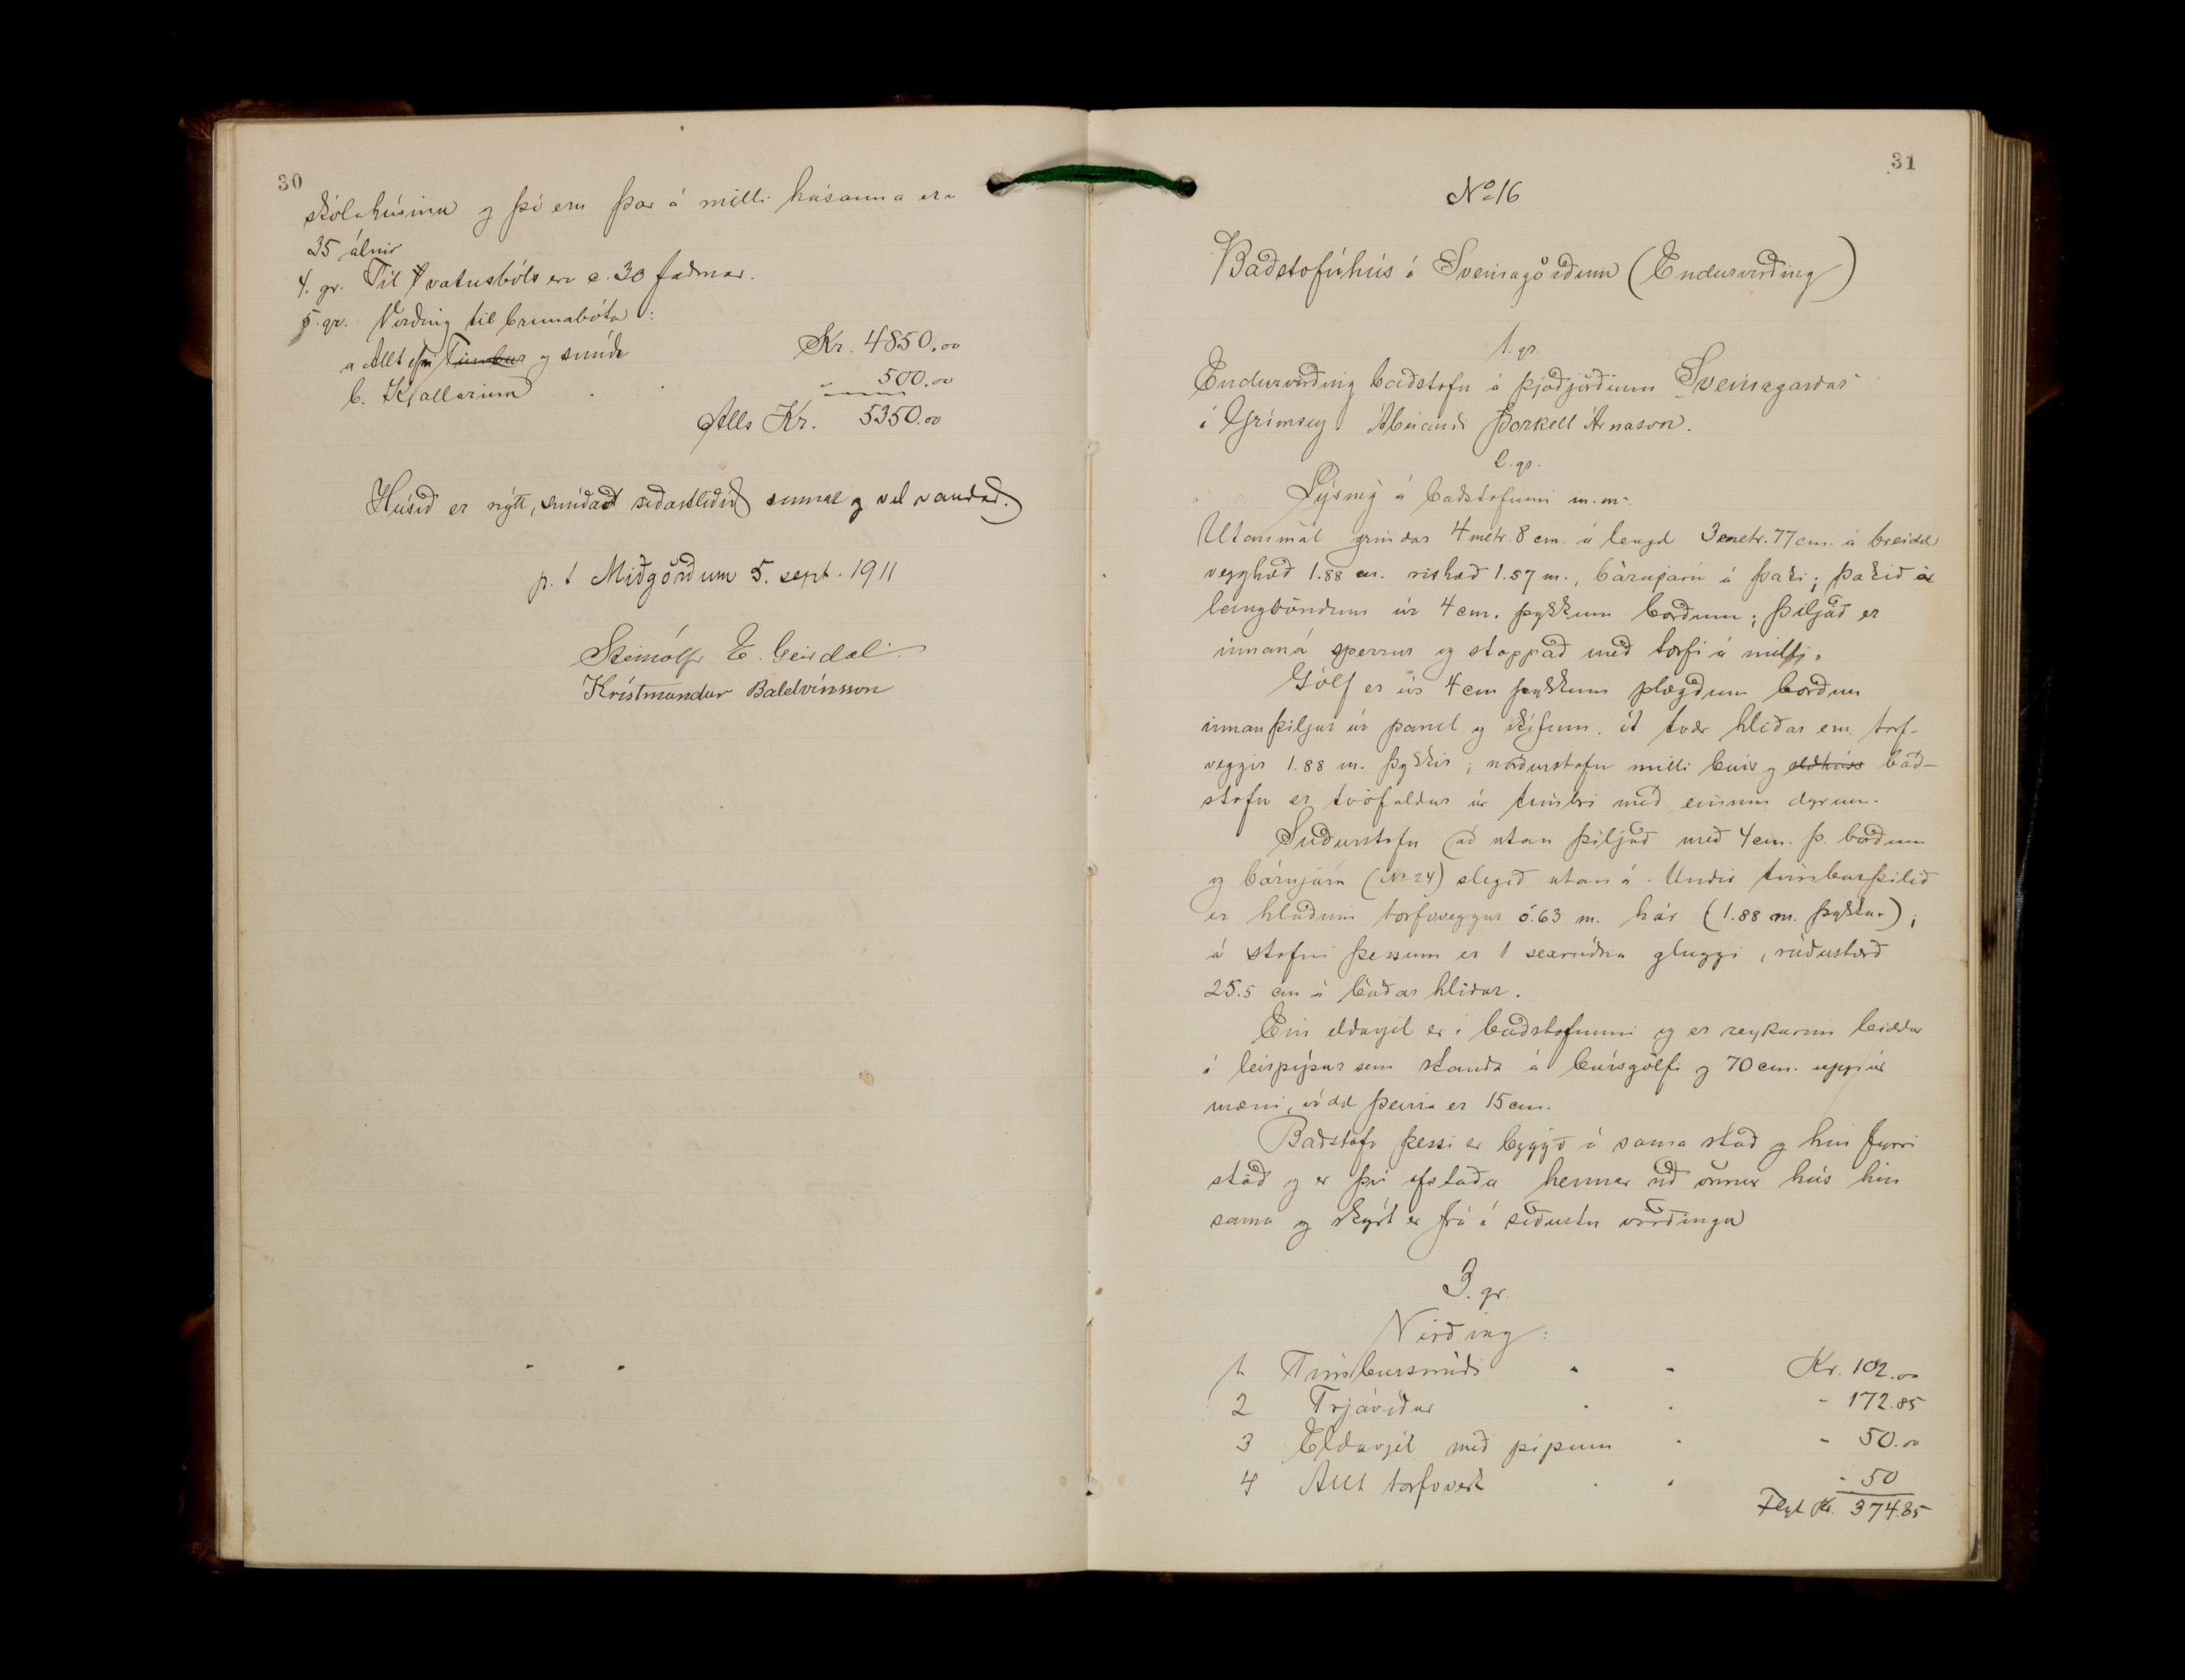 30
skólahúsinu og því eru þar á milli húsanna era
35 álnir
4. gr. Til vatnsbóls eru c. 30 faðmar.
5. gr. Virðing til brunabóta:
a Allt efni Timbur og smíði Kr. 4850.00
b. Kjallarinn . . " 500.00
Alls Kr. 5350.00
Húsið er nýtt, smíðað síðastliðið sumar og vel vandað.
p. t Miðgörðum 5. sept. 1911
Steinólfr E. Geirdal
Kristmundur Baldvinsson
31
No 16
Baðstofuhús á Sveinagörðum (Endurvirðing)
1. gr.
Endurvirðing baðstofu á þjóðjörðinni Sveinagarðar
í Grímsey Ábúandi Þorkell Árnason.
2. gr.
Lýsing á baðstofunni m. m.
Utanmál grindar 4 metr. 8 cm. á lengd 3 metr. 77 cm. á breidd
vegghæð 1.88 m. rishæð 1.57 m., bárujárn á þaki; þakið úr
langböndum úr 4 cm. þykkum borðum; þiljað er
innaná sperrur og stoppað með torfi á milli.
Gólf er úr 4 cm þykkum plægðum borðum
innanþiljur úr panel og skífum. út tvær hliðar eru torf-
veggir 1.88 m. þykkir; norðurstafn milli búrs og eldhúss bað-
stofu er tvöfaldur úr timbri með einum dyrum.
Suðurstafn að utan þiljað með 4 cm. þ. borðum
og bárujárn (No 24) slegið utaná. Undir timburþilið
er hlaðinn torfveggur 0.63 m. hár (1.88 m. þykkur);
á stafni þessum er 1 sexrúðu gluggi, rúðustærð
25.5 cm á báðar hliðar.
Ein eldavjel er í baðstofunni og er reykurinn leiddur
í leirpípur sem standa á búrsgólfi og 70 cm. uppúr
mæni, vídd þeirra er 15 cm.
Baðstofa þessi er byggð á sama stað og hin fyrri
stóð og er því afstaða hennar við önnur hús hin
sama og skýrt er frá í síðustu virðingu
3. gr.
Virðing:
1 Timbursmíði - - Kr. 102.00
2 Trjáviður . . - 172.85
3 Eldavjel með pípum . - 50.00
4 Allt torfverk . . - 50
Flyt Kr. 374.85